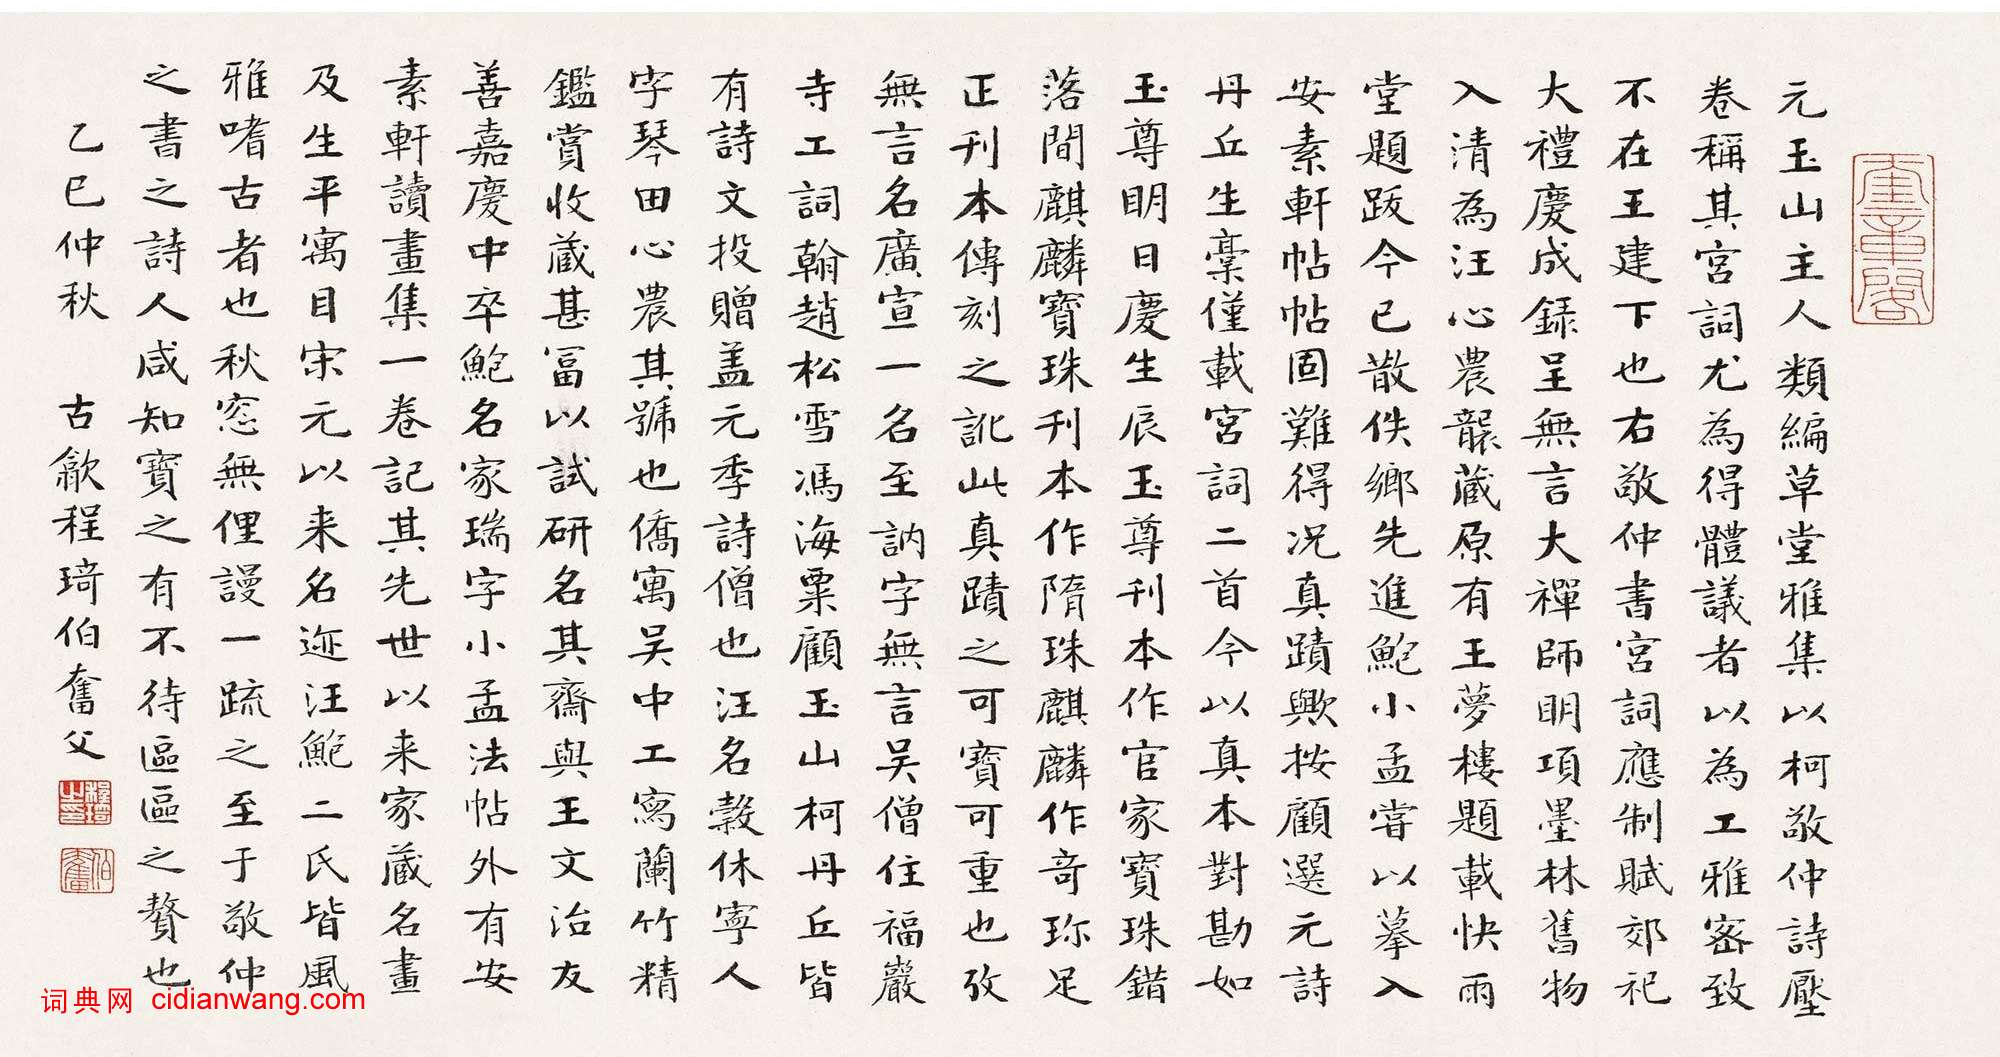 元玉山主人類編草堂雅集以柯敬仲詩壓
卷稱其宮詞尤為得體議者以為工雅密致
不在王建下也右敬仲書宮詞應制賦郊祀
大禮慶成錄呈無言大禪師明項墨林舊物
入清為汪心農龑藏原有王夢樓題載快雨
堂題跋今已散佚鄉先進鮑小孟嘗以摹入
安素軒帖帖固難得况真蹟歟按顧選元詩
丹丘生稾僅載宮詞二首今以真本對勘如
玉尊明日慶生辰玉尊刊本作官家寶珠錯
落間麒麟寶珠刊本作隋珠麒麟作奇珎足
正刊本傳刻之訛此真蹟之可寶可重也攷
無言名廣宣一名至訥字無言吴僧住福巖
寺工詞翰趙松雪馮海粟顧玉山柯丹丘皆
有詩文投贈盖元季詩僧也汪名榖休寧人
字琴田心農其號也僑寓吴中工寫蘭竹精
鑑賞收蔵甚冨以試研名其齋與王文治友
善嘉慶中卒鮑名家瑞字小孟法帖外有安
素軒讀畫集一卷記其先世以来家蔵名畫
及生平寓目宋元以来名迹汪鮑二氏皆風
雅嗜古者也秋窓無俚謾一疏之至于敬仲
之書之詩人咸知寶之有不待區區之贅也
乙巳仲秋 古歙程琦伯奮父
词典网 cidianwang.com